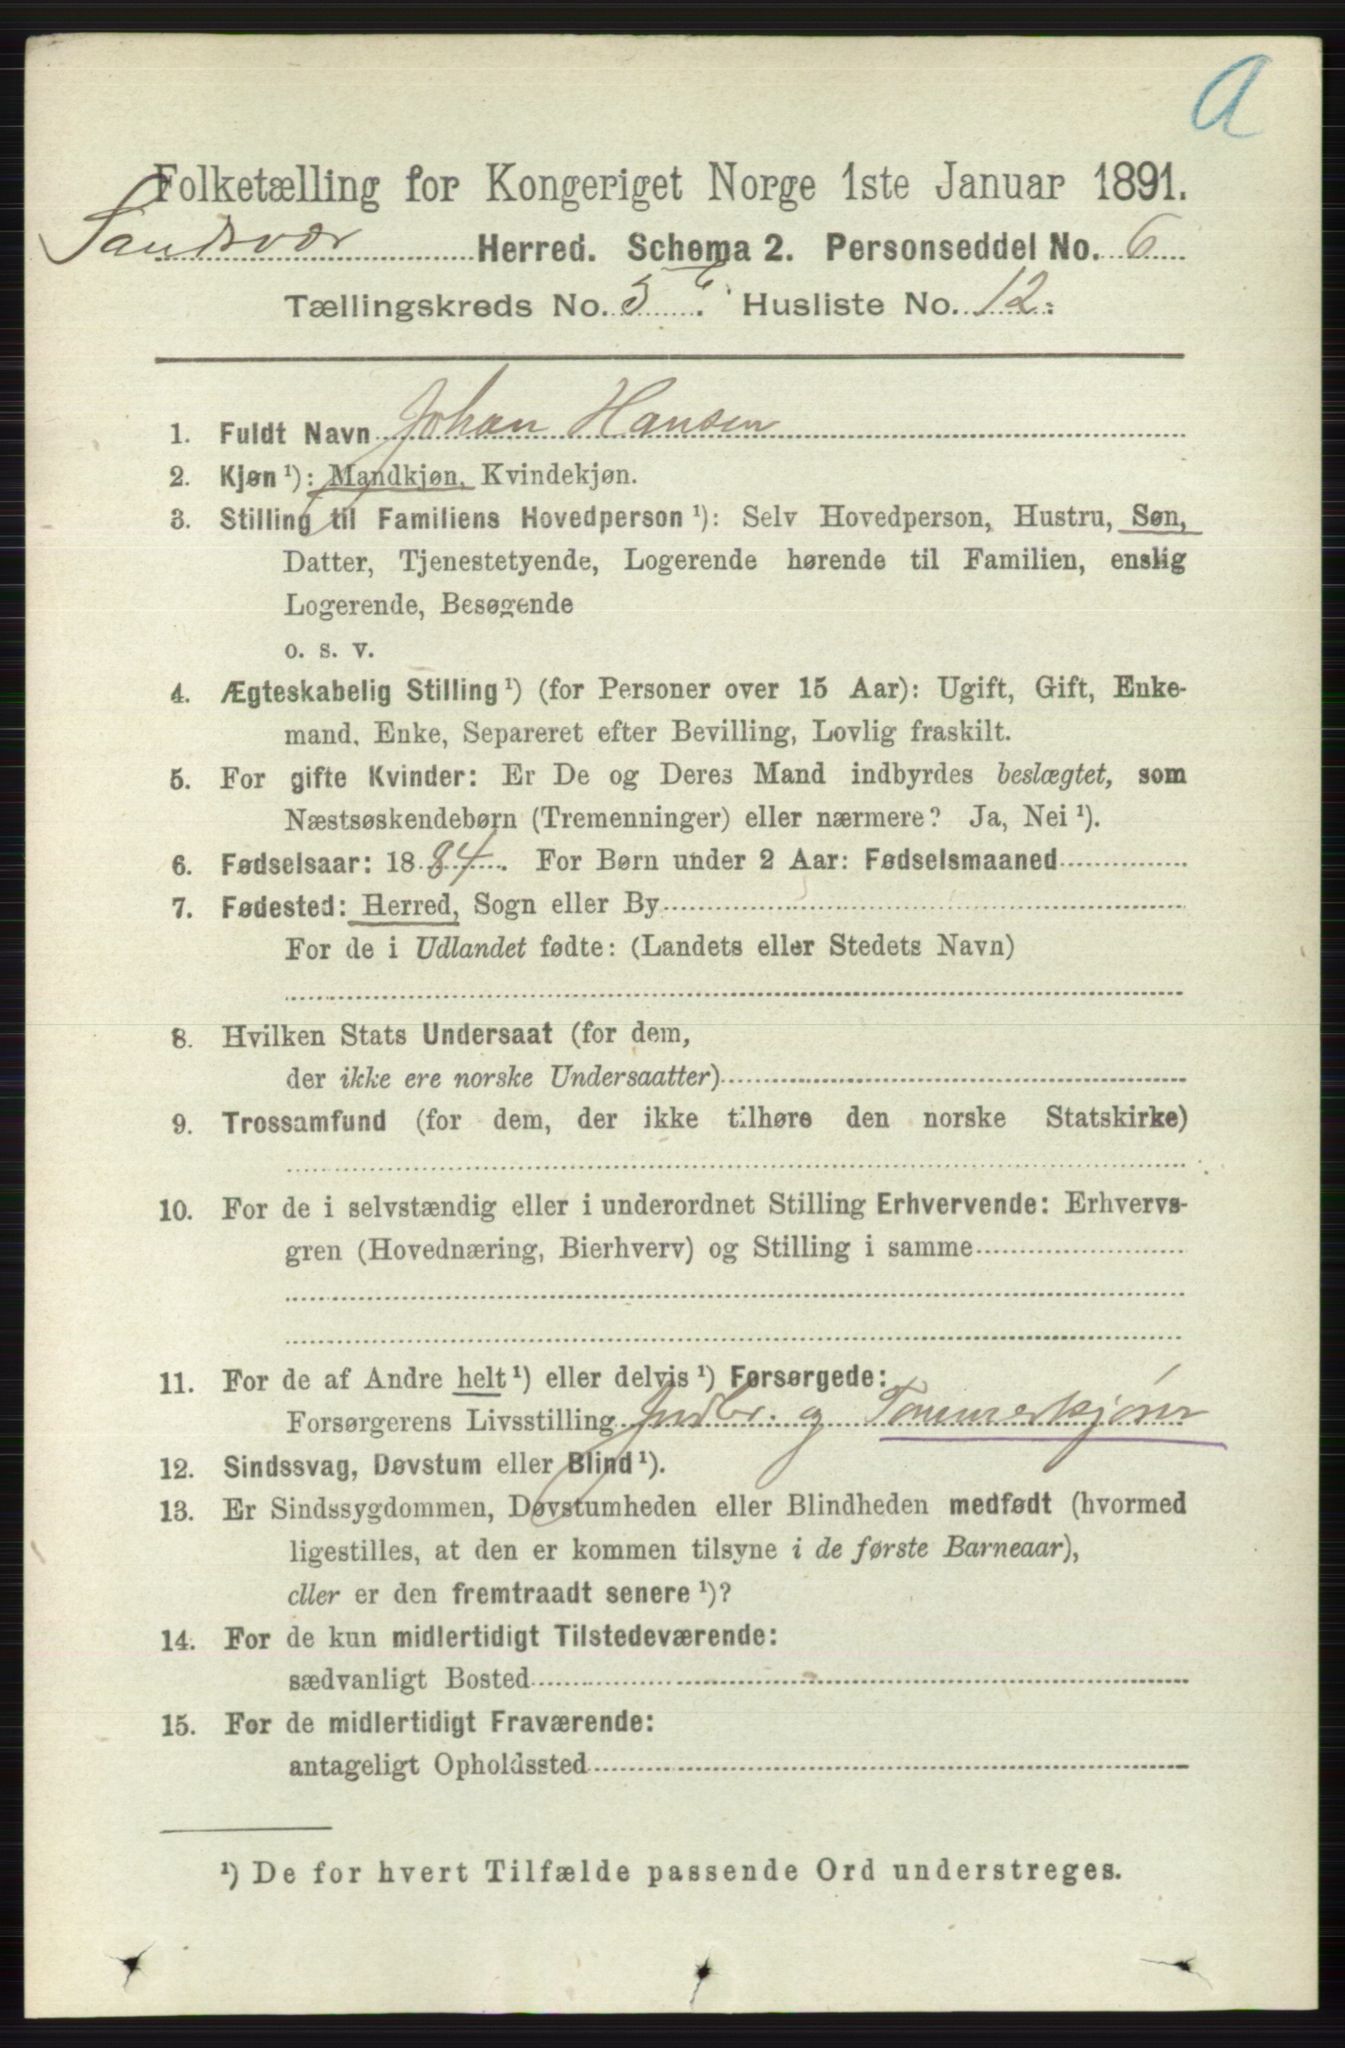 A
Folketælling for Kongeriget Norge 1ste Januar 1891.
Sandsvær Herred. Schema 2. Personseddel No. 6
Tællingskreds No. 5. Husliste No. 12.
1. Fuldt Navn Johan Hansen
2. Kjøn¹): Mandkjøn, Kvindekjøn.
3. Stilling til Familiens Hovedperson¹): Selv Hovedperson, Hustru, Søn,
Datter, Tjenestetyende, Logerende hørende til Familien, enslig
Logerende, Besøgende
o. s. v.
4. Ægteskabelig Stilling¹) (for Personer over 15 Aar): Ugift, Gift, Enke-
mand, Enke, Separeret efter Bevilling, Lovlig fraskilt.
5. For gifte Kvinder: Er De og Deres Mand indbyrdes beslægtet, som
Næstsøskendebørn (Tremenninger) eller nærmere? Ja, Nei¹).
6. Fødselsaar: 1884. For Børn under 2 Aar: Fødselsmaaned
7. Fødested: Herred, Sogn eller By
For de i Udlandet fødte: (Landets eller Stedets Navn)
8. Hvilken Stats Undersaat (for dem,
der ikke ere norske Undersaatter)
9. Trossamfund (for dem, der ikke tilhøre den norske Statskirke)
10. For de i selvstændig eller i underordnet Stilling Erhvervende: Erhvervs-
gren (Hovednæring, Bierhverv) og Stilling i samme
11. For de af Andre helt¹) eller delvis¹) Forsørgede:
Forsørgerens Livsstilling Jordbr. og Tømmerkjører
12. Sindssvag, Døvstum eller Blind¹).
13. Er Sindssygdommen, Døvstumheden eller Blindheden medfødt (hvormed
ligestilles, at den er kommen tilsyne i de første Barneaar),
eller er den fremtraadt senere¹)?
14. For de kun midlertidigt Tilstedeværende:
sædvanligt Bosted
15. For de midlertidigt Fraværende:
antageligt Opholdssted
¹) De for hvert Tilfælde passende Ord understreges.